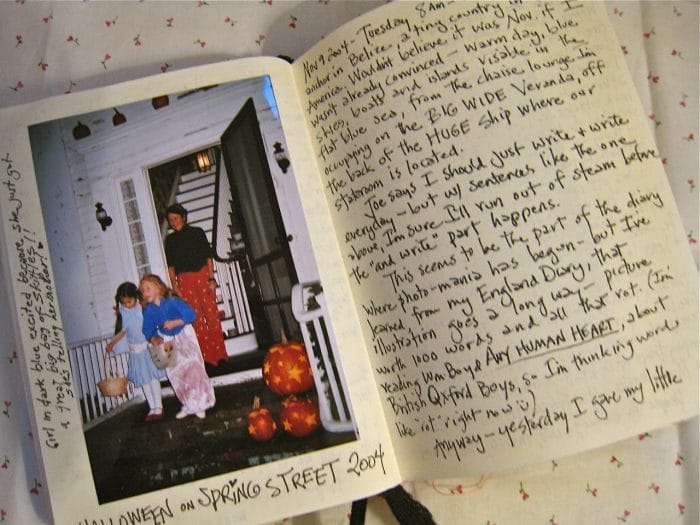 Girl in dark blue excited because she just got
a great big bag of SKITTLES!!
she's telling her mother!
HALLOWEEN on SPRING STREET 2004
Nov 9 2004. Tuesday 8 AM -
anchor in Belize, a tiny country in
America. Wouldn't believe it was Nov. if I
wasn't already convinced - warm day, blue
skies, boats and islands visable in the
flat blue sea, from the chaise lounge I'm
occupying on the BIG WIDE Veranda, off
the back of the HUGE Ship where our
stateroom is located.
Joe says I should just write & write
everyday - but w/ sentences like the one
above, I'm sure I'll run out of steam before
the "and write" part happens.
This seems to be the part of the diary
where photo-mania has begun - but I've
learned, from my England Diary, that
illustration goes a long way - picture
worth 1000 words and all that rot. (I'm
reading Wm Boyd ANY HUMAN HEART, about
British Oxford Boys, so I'm thinking words
like "rot" right now :)
Anyway - yesterday I gave my little